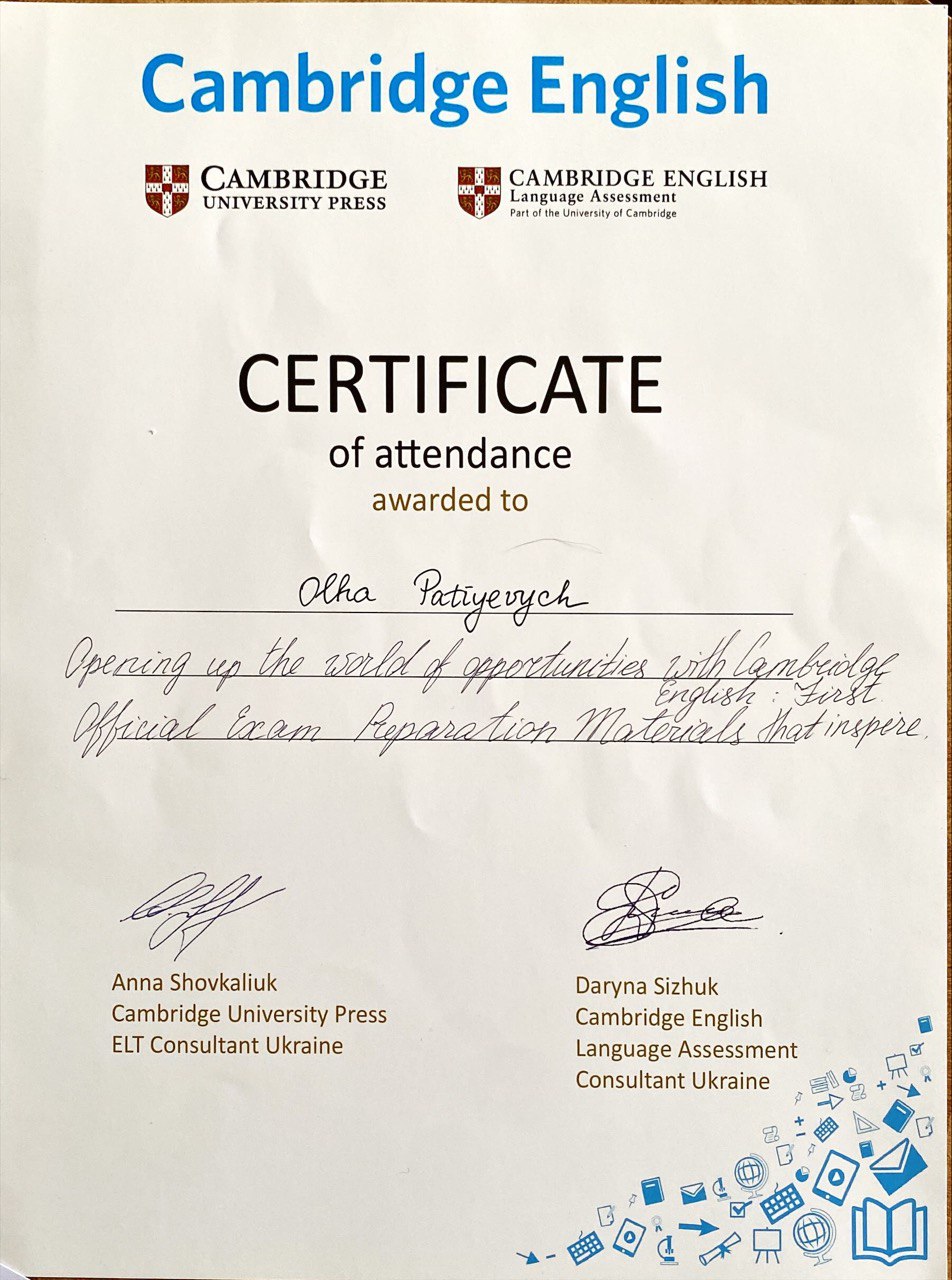 Cambridge English
CAMBRIDGE
UNIVERSITY PRESS
CAMBRIDGE ENGLISH
Language Assessment
Part of the University of Cambridge
CERTIFICATE
of attendance
awarded to
Olha Patiyevych
Opening up the world of opportunities with Cambridge
English : First
Official Exam Preparation Materials that inspire.
Anna Shovkaliuk
Cambridge University Press
ELT Consultant Ukraine
Daryna Sizhuk
Cambridge English
Language Assessment
Consultant Ukraine